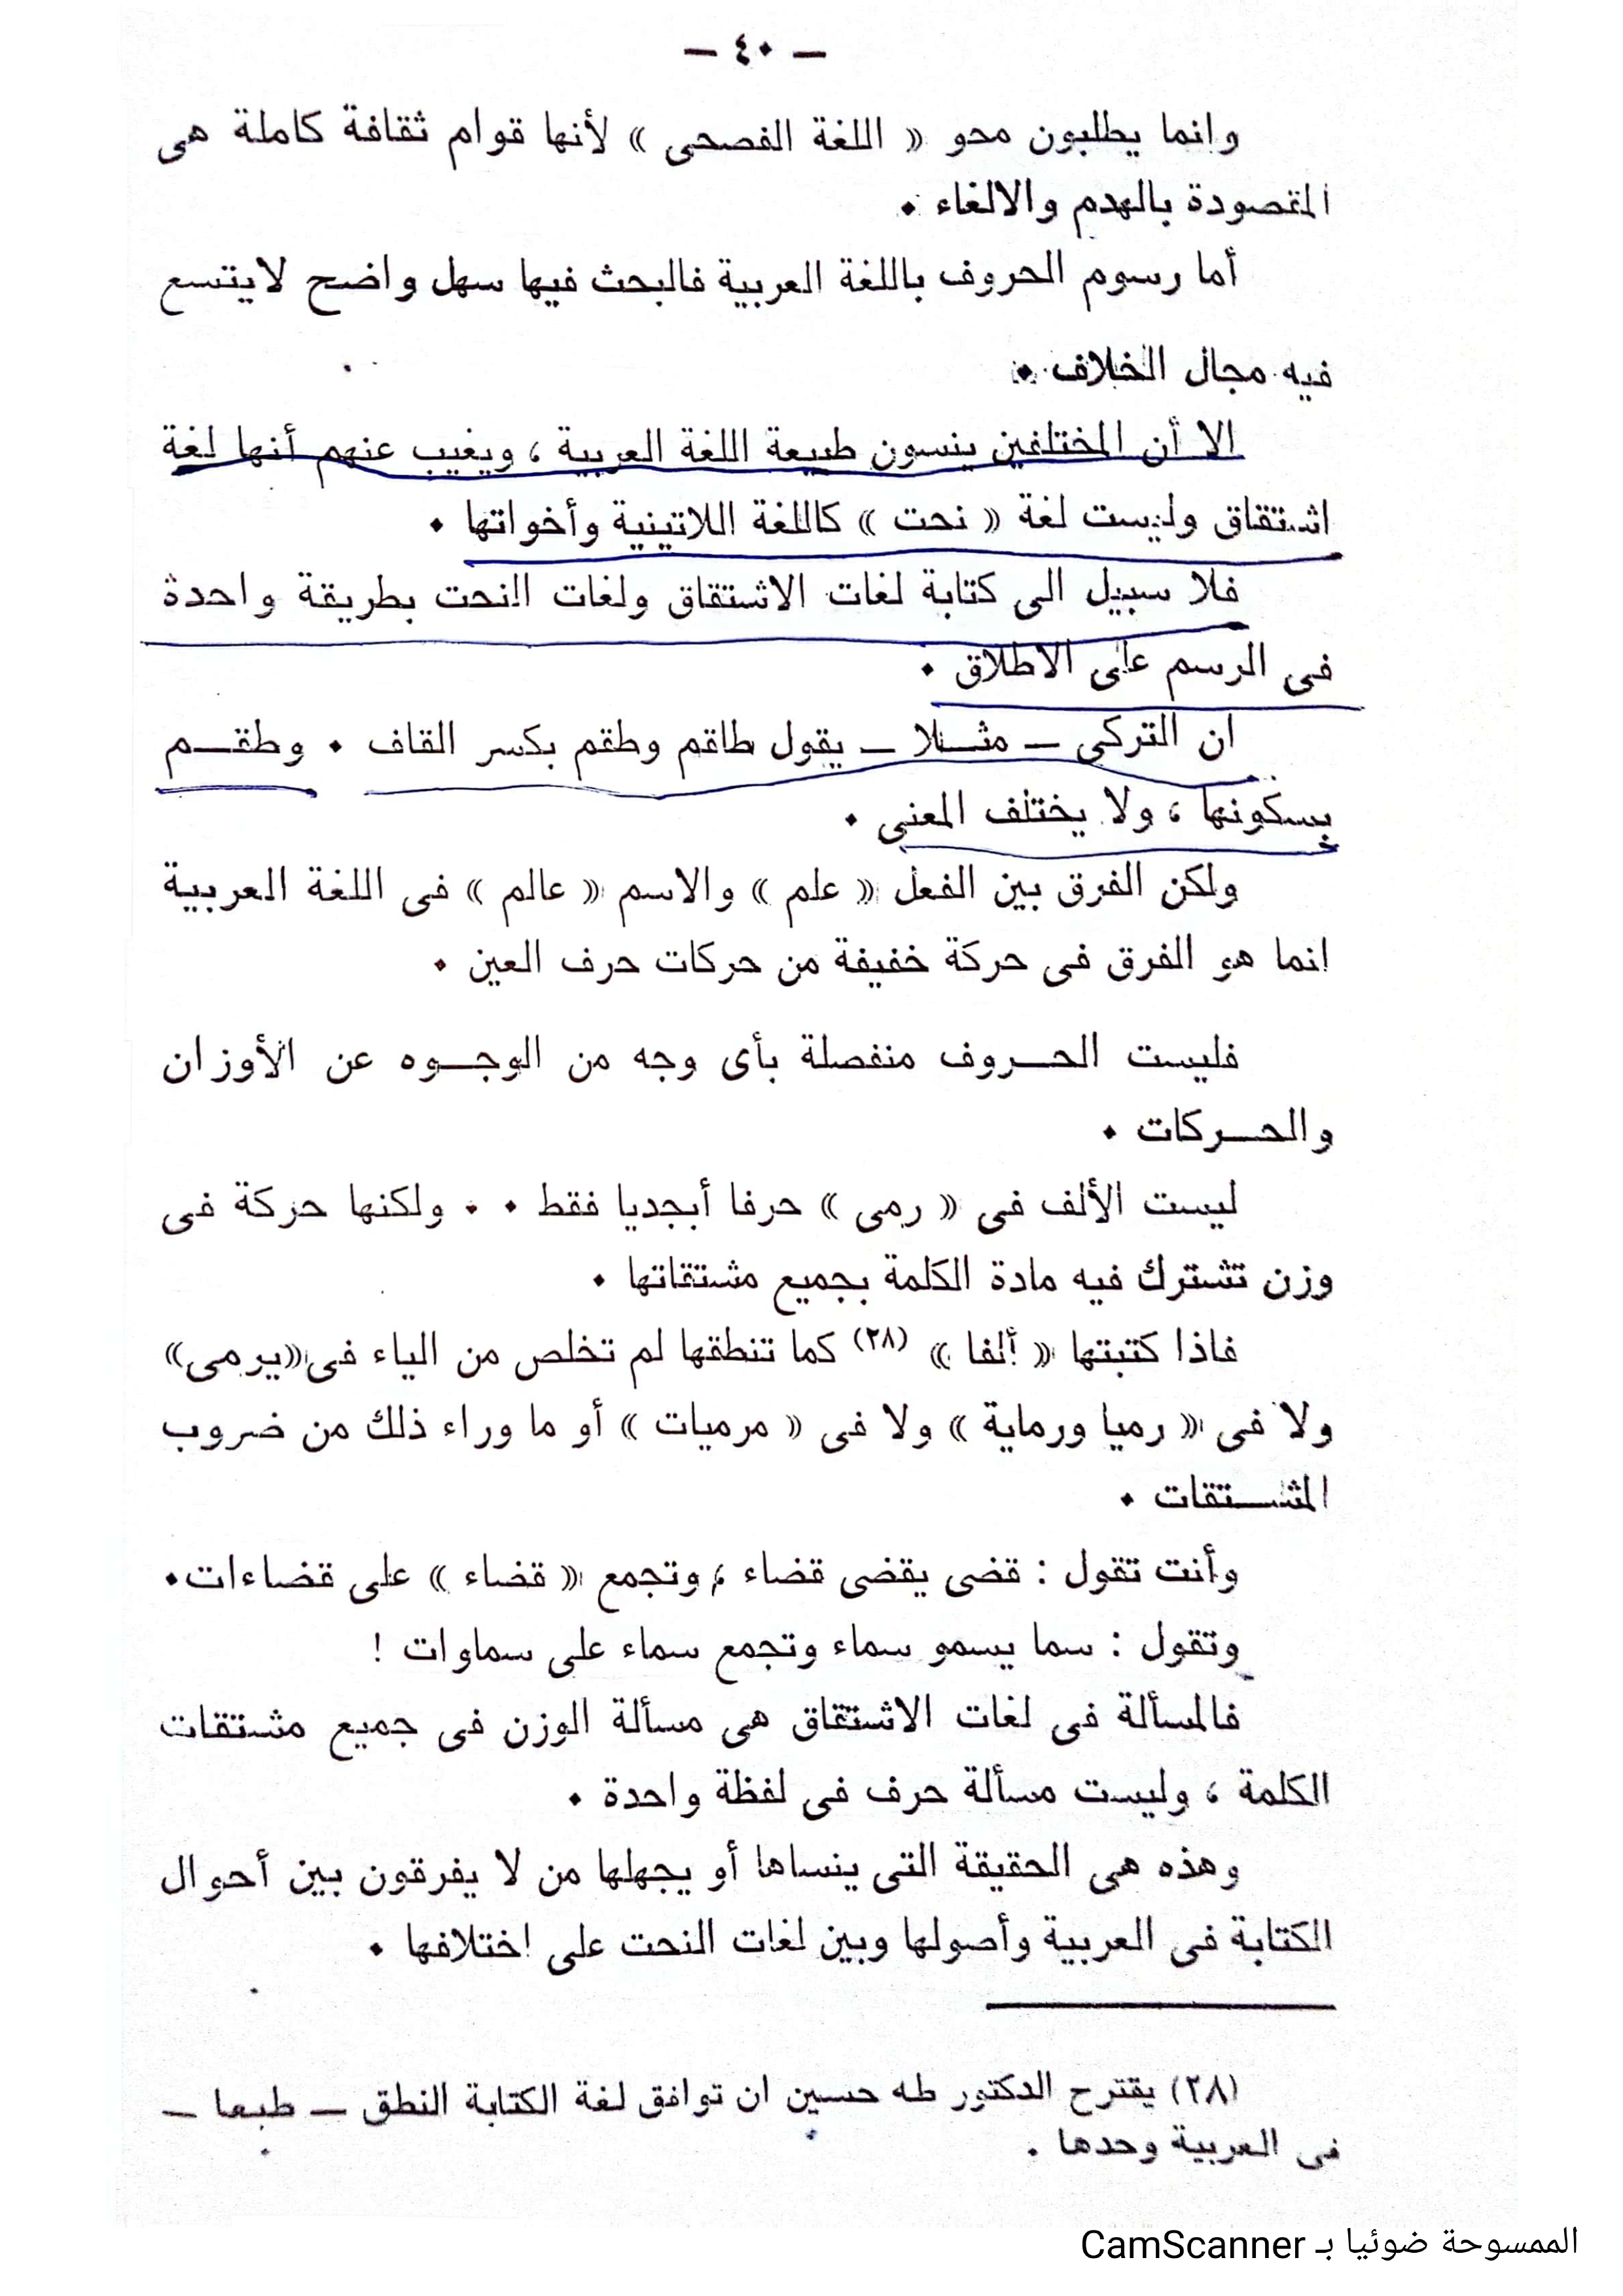 — ٤٠ —
وانما يطلبون محو « اللغة الفصحى » لأنها قوام ثقافة كاملة هى
المقصودة بالهدم والالغاء •
أما رسوم الحروف باللغة العربية فالبحث فيها سهل واضح لايتسع
فيه مجال الخلاف •
الا أن المختلفين ينسون طبيعة اللغة العربية ، ويغيب عنهم أنها لغة
اشتقاق وليست لغة « نحت » كاللغة اللاتينية وأخواتها •
فلا سبيل الى كتابة لغات الاشتقاق ولغات النحت بطريقة واحدة
فى الرسم على الاطلاق •
ان التركى — مثلا — يقول طاقم وطقم بكسر القاف • وطقم
بسكونها ، ولا يختلف المعنى •
ولكن الفرق بين الفعل « علم » والاسم « عالم » فى اللغة العربية
انما هو الفرق فى حركة خفيفة من حركات حرف العين •
فليست الحروف منفصلة بأى وجه من الوجوه عن الأوزان
والحركات •
ليست الألف فى « رمى » حرفا أبجديا فقط • • ولكنها حركة فى
وزن تشترك فيه مادة الكلمة بجميع مشتقاتها •
فاذا كتبتها « ألفا » (٢٨) كما تنطقها لم تخلص من الياء فى «يرمى»
ولا فى « رميا ورماية » ولا فى « مرميات » أو ما وراء ذلك من ضروب
المشتقات •
وأنت تقول : قضى يقضى قضاء ، وتجمع « قضاء » على قضاءات•
وتقول : سما يسمو سماء وتجمع سماء على سماوات !
فالمسألة فى لغات الاشتقاق هى مسألة الوزن فى جميع مشتقات
الكلمة ، وليست مسألة حرف فى لفظة واحدة •
وهذه هى الحقيقة التى ينساها أو يجهلها من لا يفرقون بين أحوال
الكتابة فى العربية وأصولها وبين لغات النحت على اختلافها •
(٢٨) يقترح الدكتور طه حسين ان توافق لغة الكتابة النطق — طبعا —
فى العربية وحدها .
الممسوحة ضوئيا بـ CamScanner